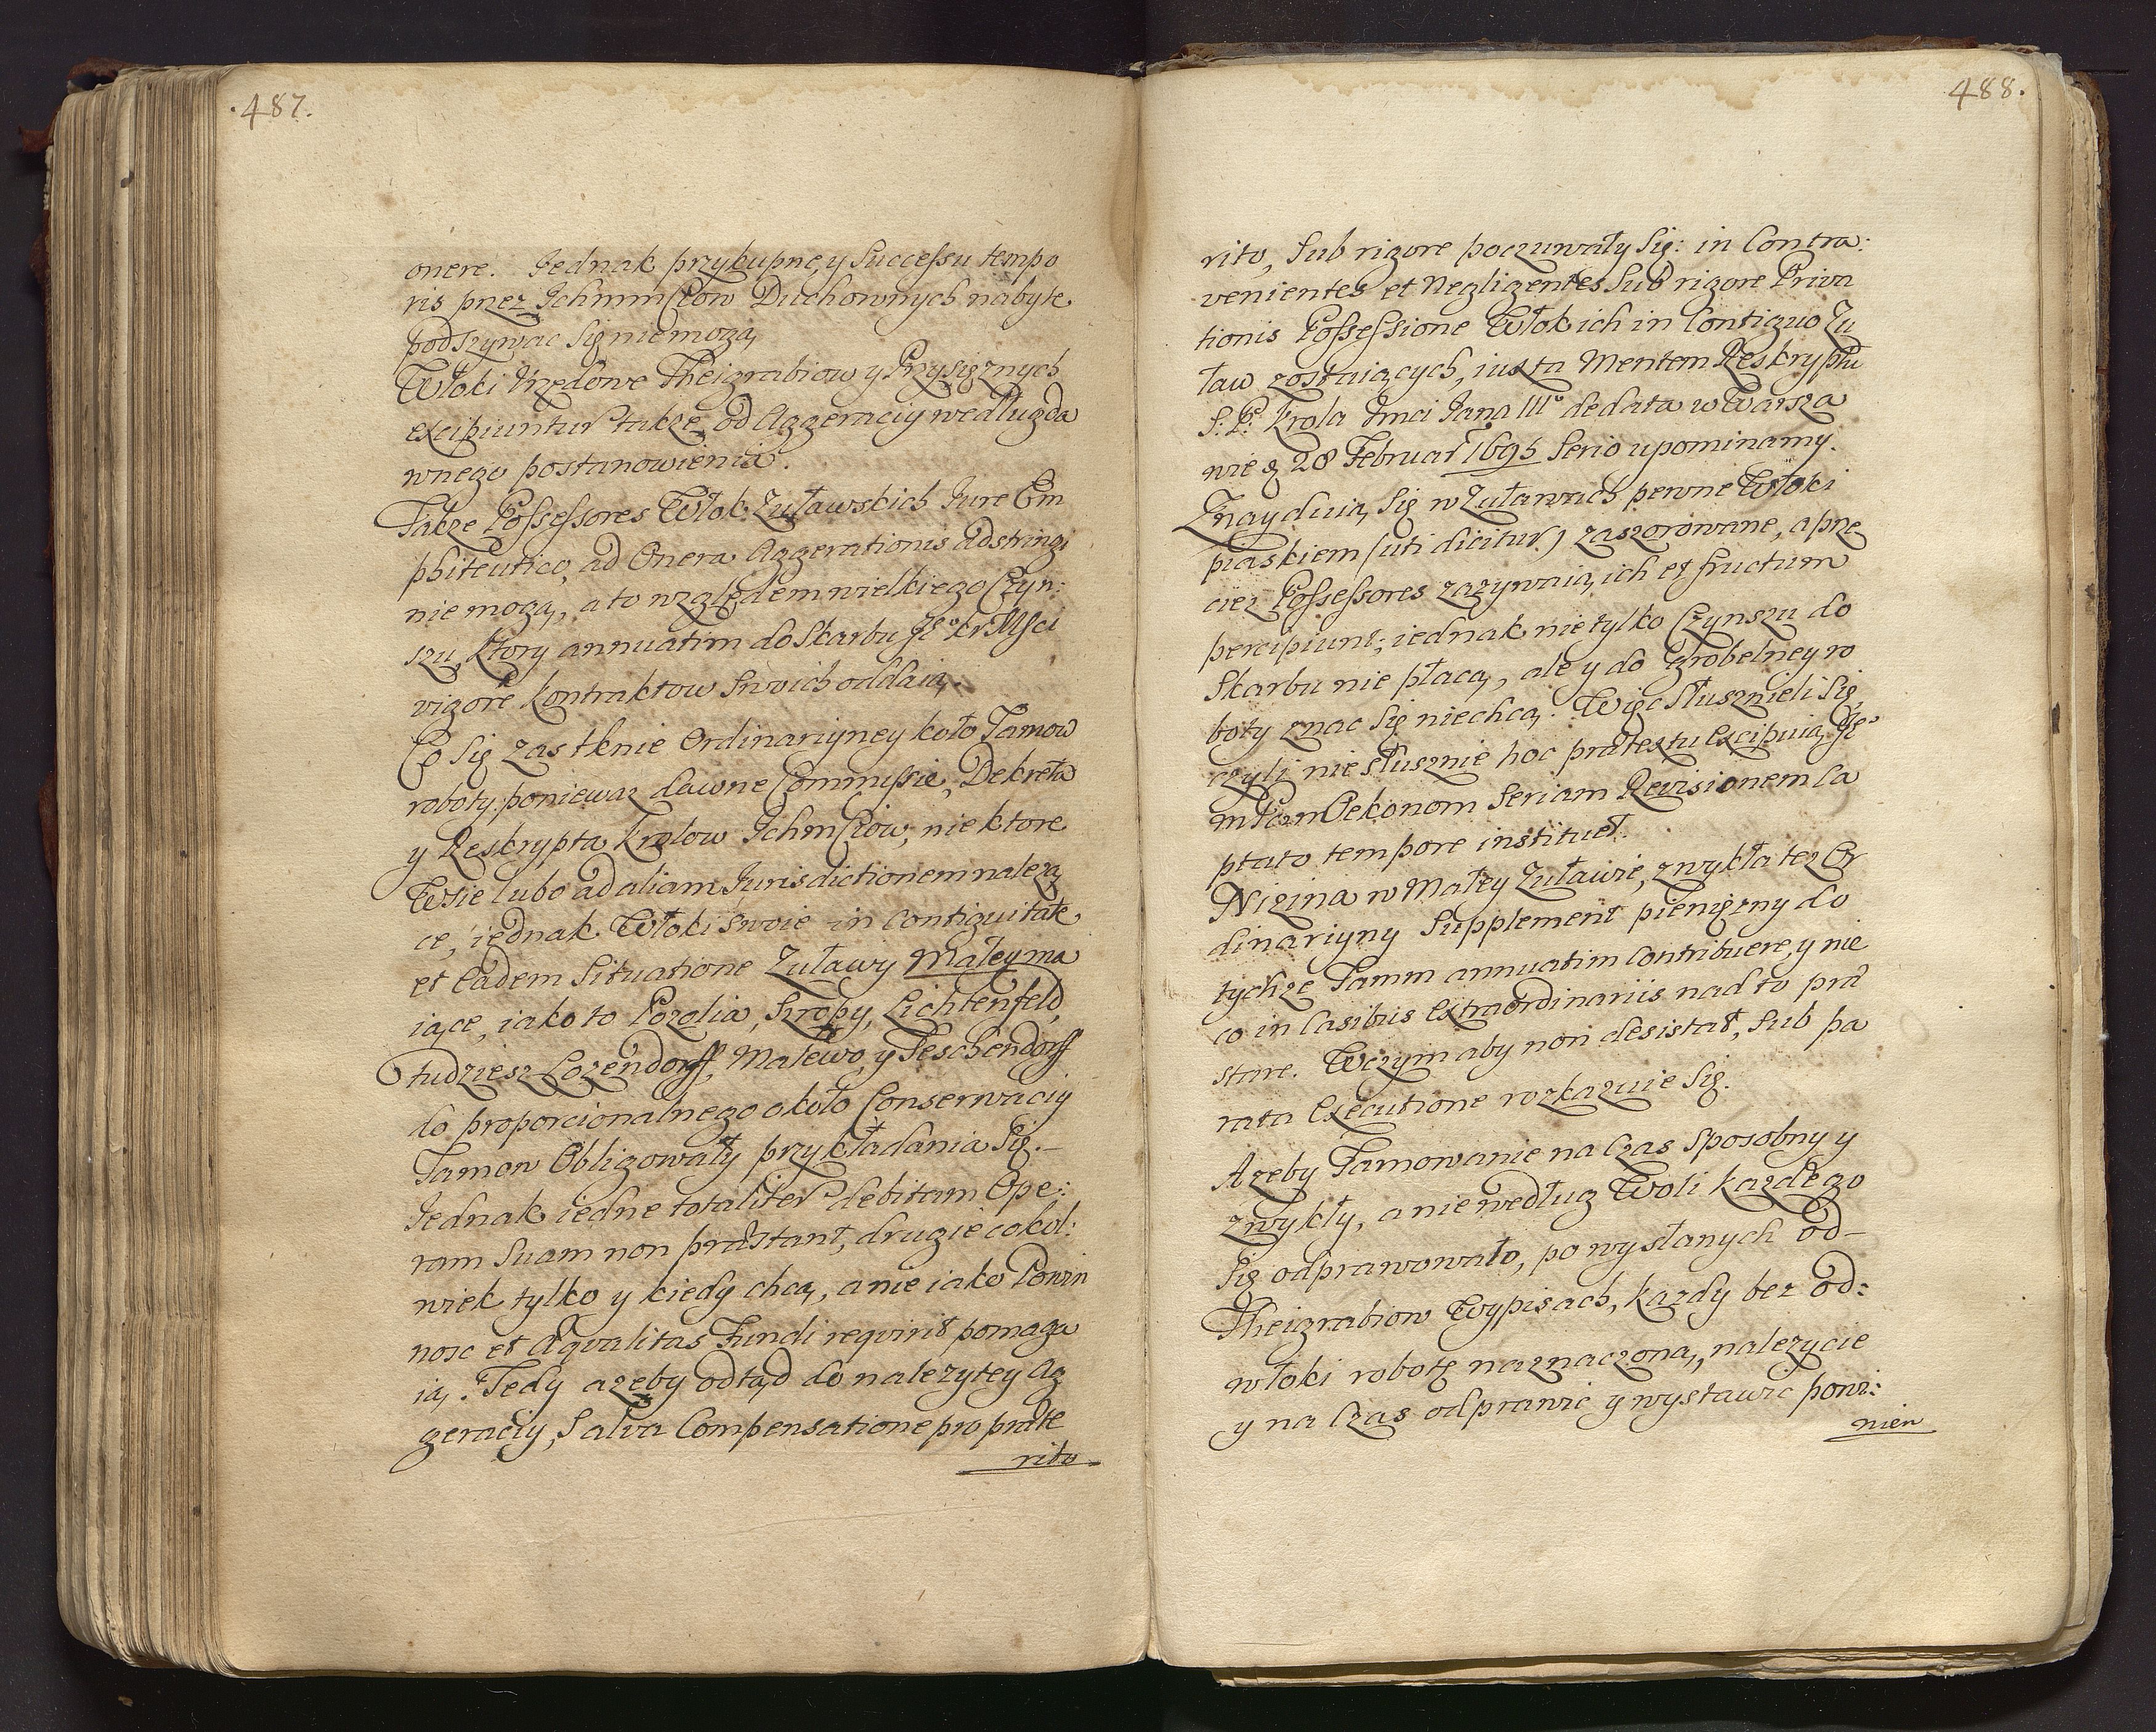 .487.
onere. Jednak przykupne, y Successu tempo
ris przez Ichmmciow Duchownych nabyte
podszywac Się nie mogą,
Włoki Urzędowe Theigrabiow y Przysięznych
excipiuntur takze od Aggeraciy według da
wnego postanowienia.
Takze Possessores Włok Zuławskich Jure Em
phiteutico, ad Onera Aggerationis adstringi
nie mogą, a to względem wielkiego Czyn:
szu, ktory annuatim do Skarbu Jeo kr Msci
vigore kontraktow Swoich oddaią,
Co Się zas tknie Ordinariyney koło Tamow
roboty, poniewaz dawne Commissie, Dekreta
y Reskrypta Krolow Ichmciow, niektore
Wsie lubo ad aliam Jurisdictionem nalezą
ce, iednak Włoki Swoie in contiguitate
et Eadem Situatione Zuławy Małey ma
iące, iako to Pozolia, Kropy, Lichtenfeld,
tudziesz Lozendorff, Malewo, y Teschendorff
do proporcionalnego około Conserwaciy
Tamow Obligowały przykładania Się.–
Jednak iedne totaliter debitam Ope:
ram Suam non præstant, drugie cokol:
wiek tylko y kiedy chcą, a nie iako Powin
nosc et Æqvalitas Fundi reqvirit pomaga
ią, Tedy azeby odtąd do nalezytey Ag
geraciy, Salva Compensatione pro præte
rito
488.
rito, Sub rigore poczuwały Się: in Contra:
venientes et Negligentes Sub rigore Priva
tionis Possessione Włok ich in Contiguo Zu
ław zostaiących, iuxta Mentem Reskryptu
S: P: Krola Jmci Jana IIIo de data w Warsza
wie d 28 Februar 1695 Serio upominamy.
Znayduią Się w Zuławach pewne Włoki
piaskiem (uti dicitur) zaszorowane, a prze
ciez Possessores zazywaią, ich et fructum
percipiunt; iednak nie tylko Czynszu do
Skarbu nie płacą, ale y do Grobelney ro
boty znac Się niechcą. Więc Słusznieli Się,
czyli nie słusznie hoc prætextu Excipuią, Jeo
mPan Oekonom Seriam Revisionem Ca
ptato tempore instituet.
Nizina w Małey Zuławie, zwykła tez Or
dinariyny Supplement pienięzny do
tychze Tamm annuatim Contribuere, y nie
co in Casibus Extraordinariis nad to præ
stare. W czym aby non desistat, Sub pa
rata Executione rozkazuie Się.
Azeby Tamowanie na Czas Sposobny y
zwykły, a nie według Woli kazdego
Się odprawowało, po wysłanych od–
Theigrabiow Wypisach, kazdy bez od:
włoki robotę naznaczoną, nalezycie
y na Czas odprawic y wystawic powi:
nien